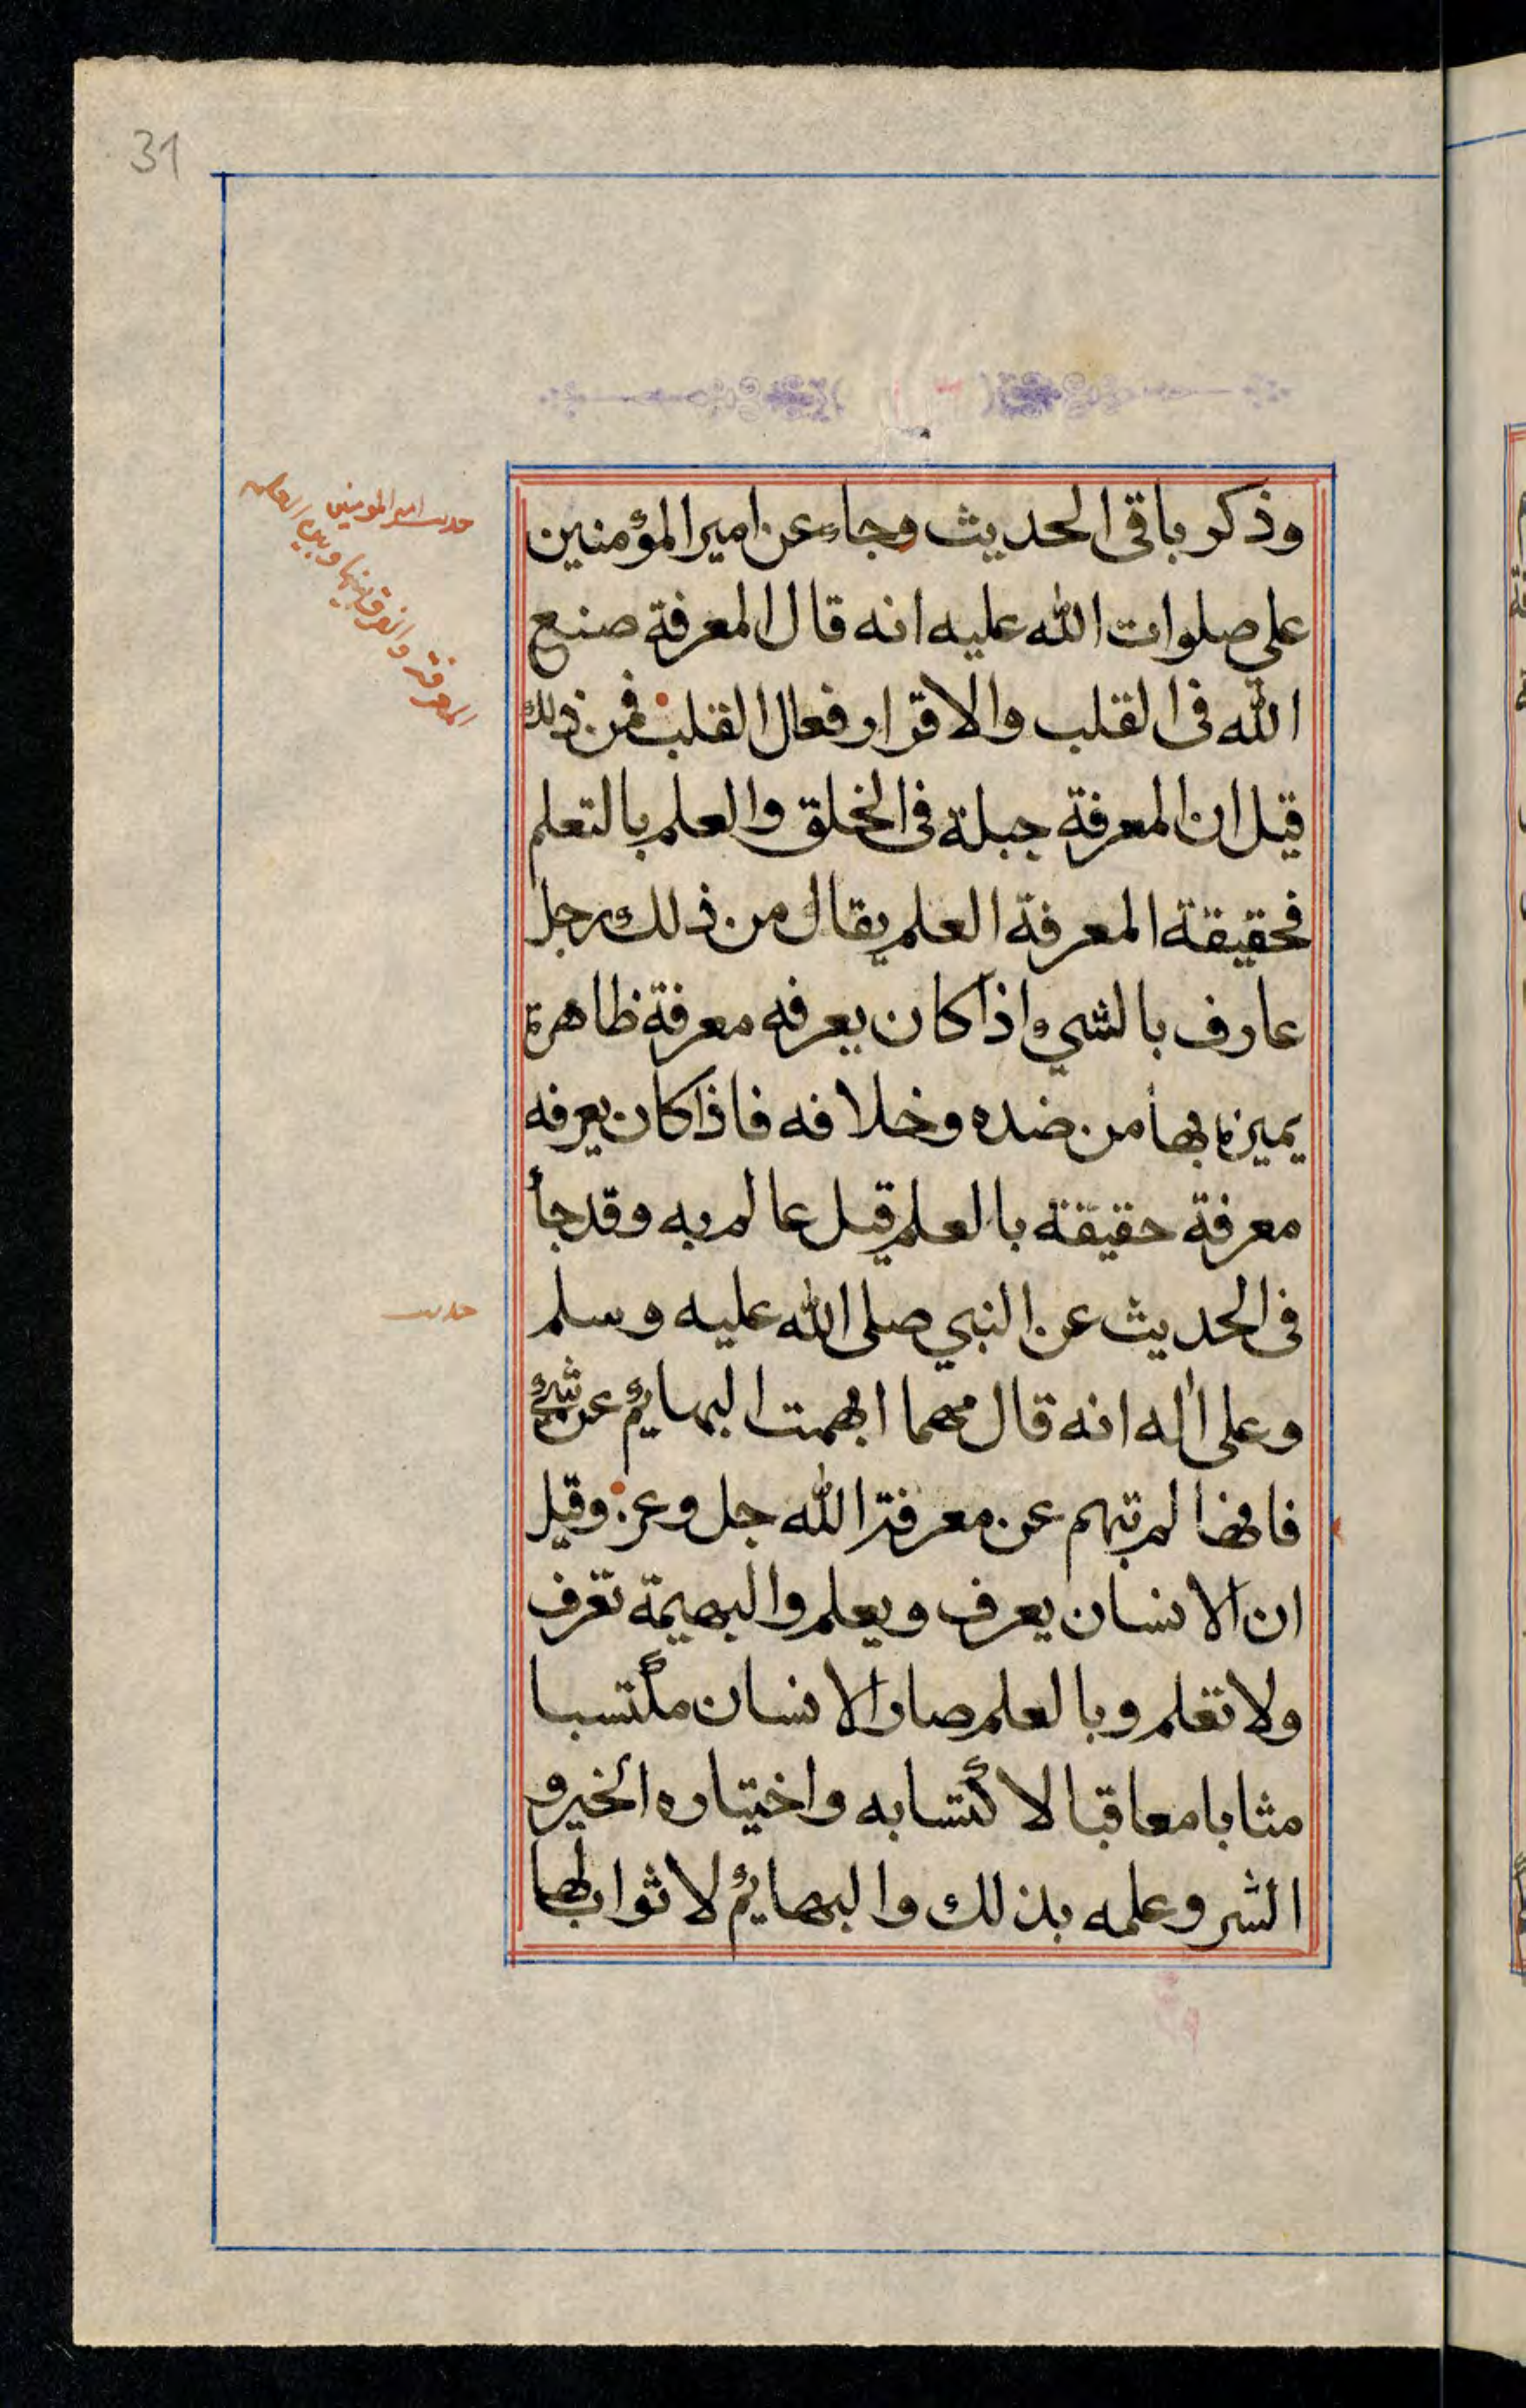 31
وذكر باقى الحديث وجاء عن امير المؤمنين
على صلوات الله عليه انه قال المعرفة صنع
الله فى القلب والاقرار فعال القلب فمن ذلك
قيل ان المعرفة جبلة فى الخلق والعلم بالتعلم
فحقيقة المعرفة العلم يقال من ذلك رجل
عارف بالشيء اذا كان يعرفه معرفة ظاهرة
يميزه بها من ضده وخلافه فاذا كان يعرفه
معرفة حقيقة بالعلم قيل عالم به وقد جأ
فى الحديث عن النبي صلى الله عليه وسلم
وعلى اله انه قال مهما ابهمت البهايم عن شيء
فانها لم تبهم عن معرفة الله جل وعز وقيل
ان الانسان يعرف ويعلم والبهيمة تعرف
ولا تعلم وبالعلم صار الانسان مكتسبا
مثابا معاقبا لاكتسابه واختياره الخير و
الشر وعلمه بذلك والبهايم لا ثواب لها
حديث امير المومنين
المعرفة والفرق بينها وبين العلم
حديث